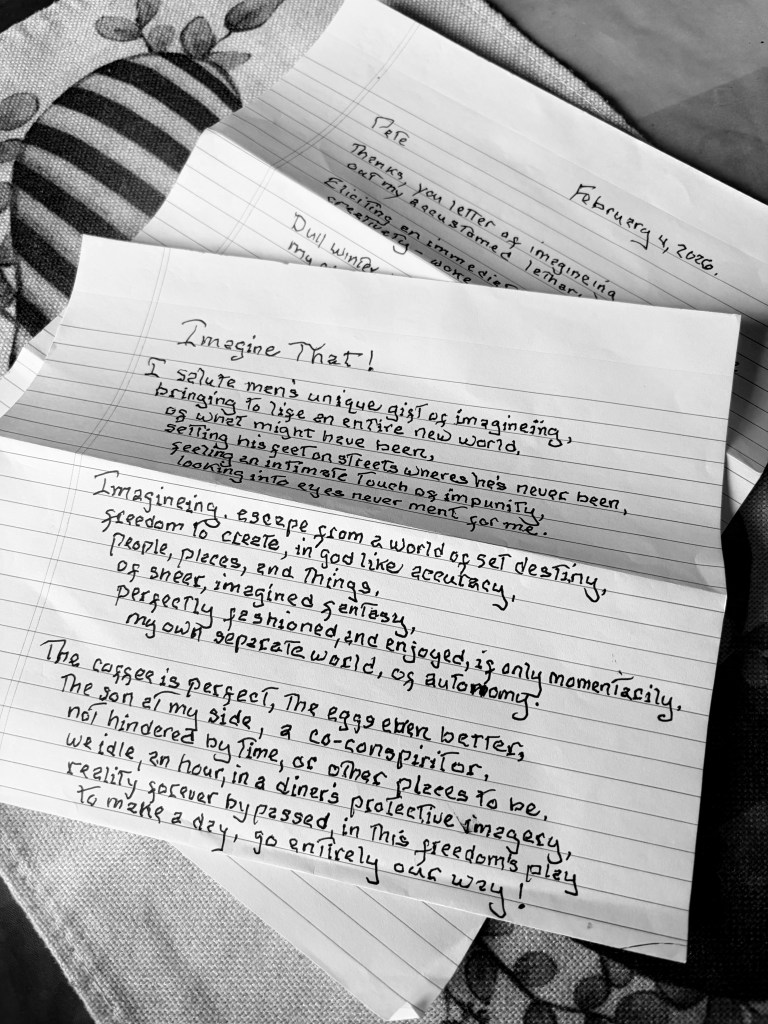 Pete
February 4, 2026.
Thenks, you letter of imagineing
out my accustomed lethar
Eliciting an immedia
creativity - woke
Dull winter
my
Imagine That!
I salute men's unique gift of imagineing,
bringing to life an entire new world,
of what might have been,
setting his feet on streets wheres he's never been,
feeling an intimate touch of impunity,
looking into eyes never ment for me.
Imagineing, escape from a world of set destiny,
freedom to create, in god like accuracy,
people, places, and things,
of sheer, imagined fentasy,
perfectly fashioned, and enjoyed, if only momentarily.
my own separate world, of autonomy.
The coffee is perfect, the eggs even better,
The son at my side, a co-conspiritor,
not hindered by time, or other places to be,
we idle, an hour, in a diner's protective imagery,
reality forever bypassed, in this freedom's play
to make a day, go entirely our way!